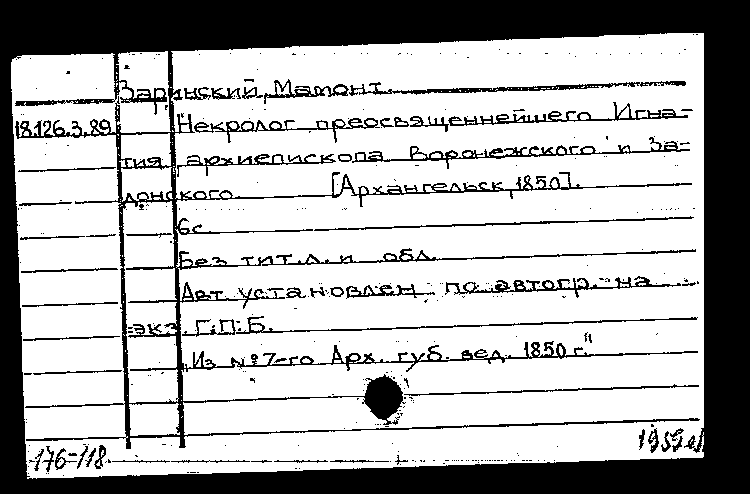 Заринский, Мамонт.
18.126.3.89 Некролог преосвященнейшего Игна-
тия, архиепископа Воронежского и За-
донского. [Архангельск, 1850].
6с.
Без тит.л. и обл.
Авт. установлен по автогр. на
экз. Г.П.Б.
„Из №7-го Арх. губ. вед. 1850 г."
176-118